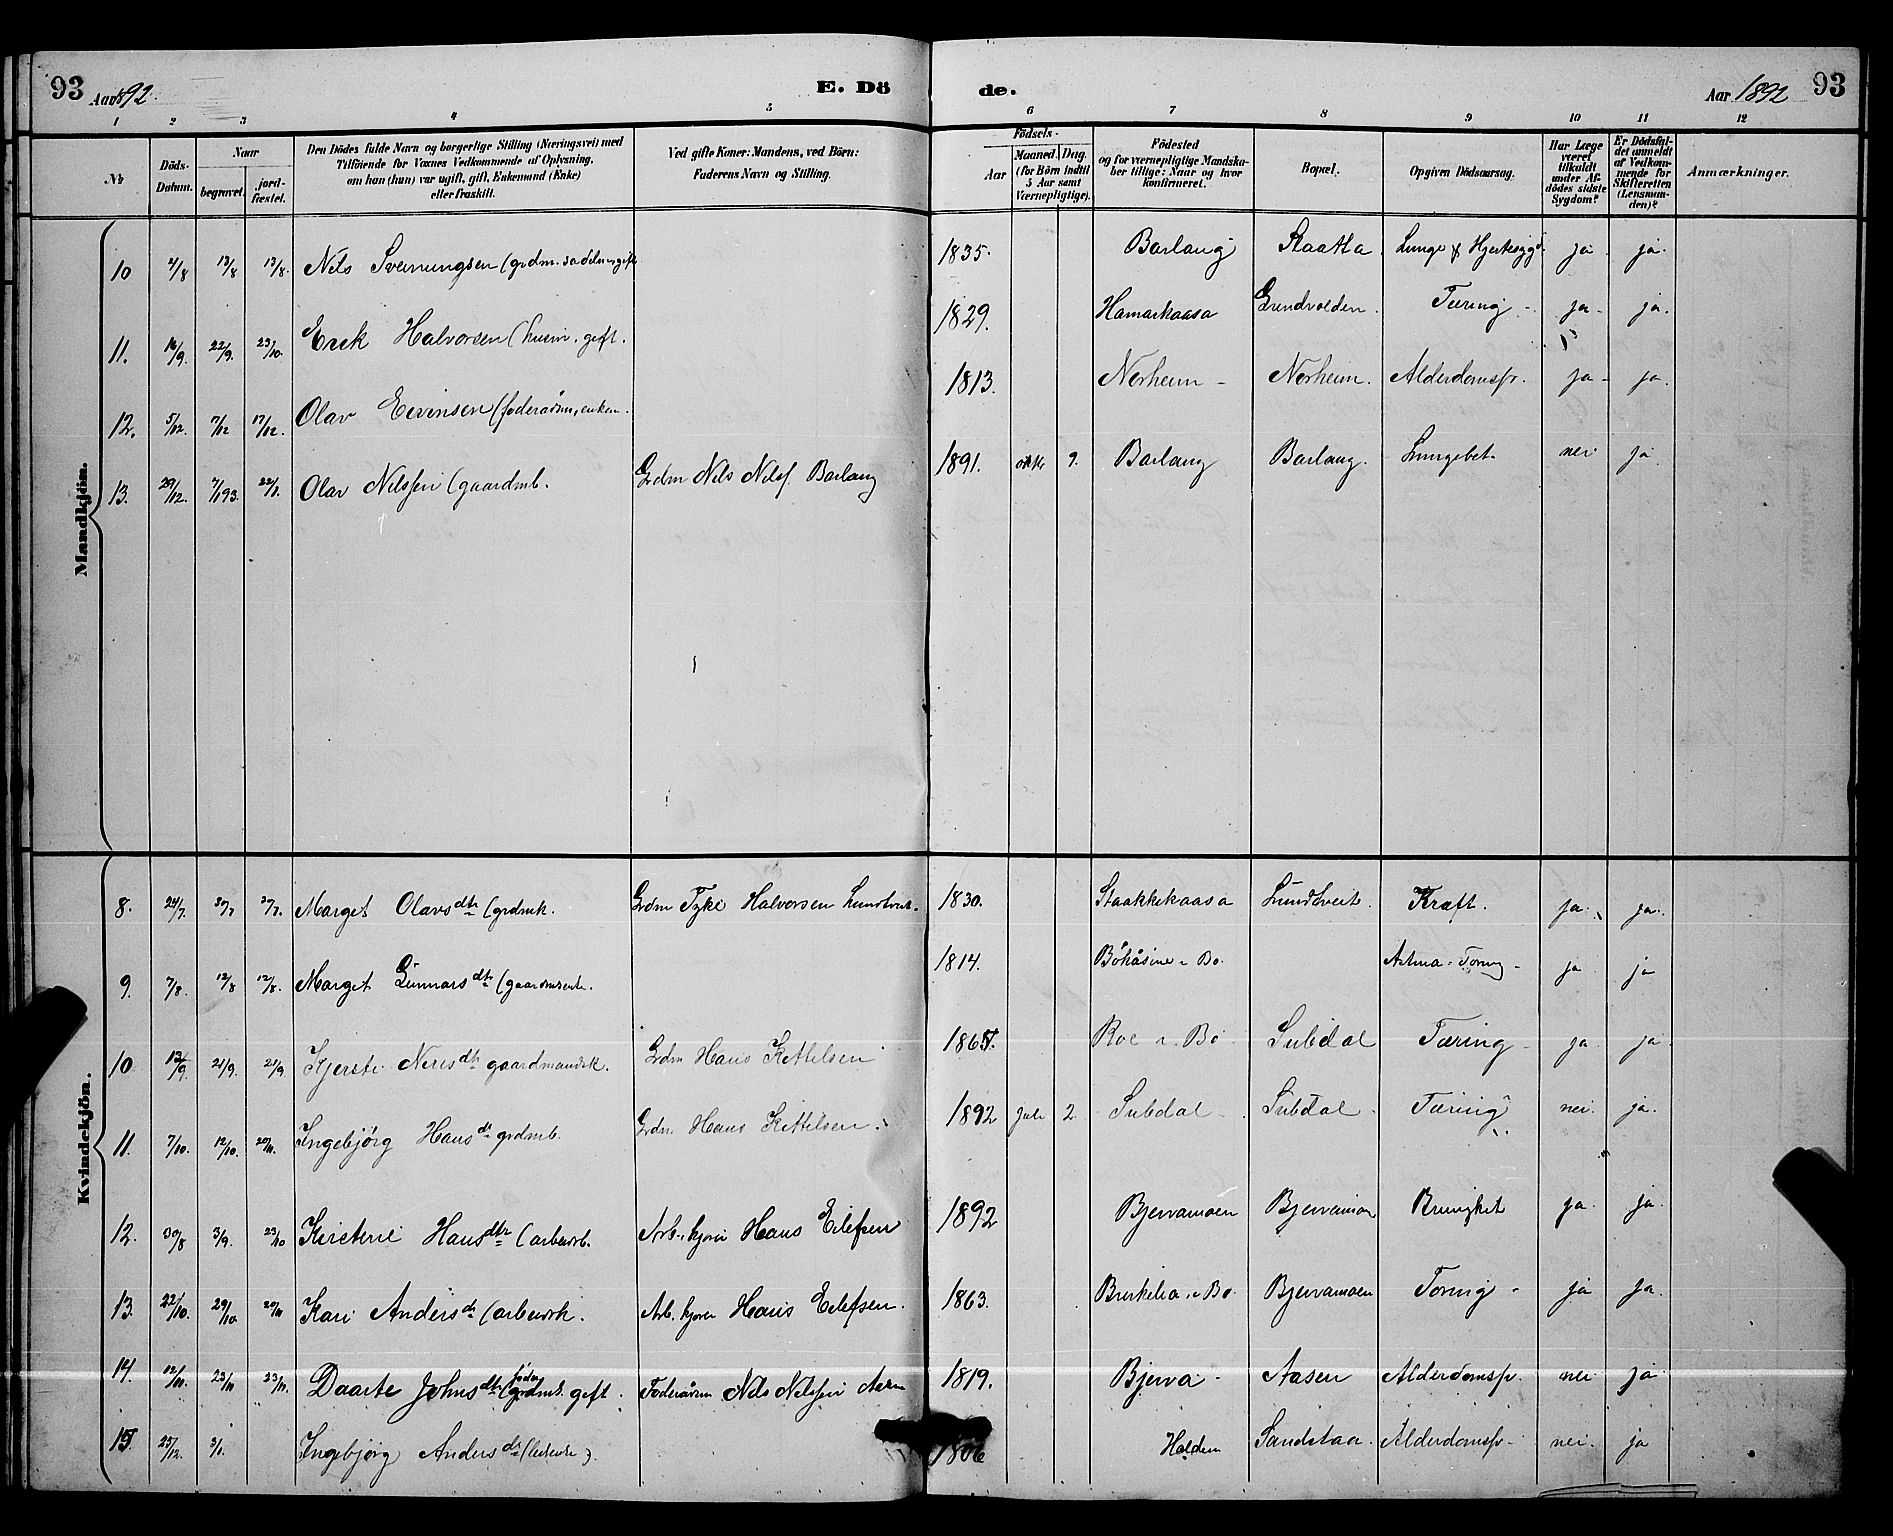 93 Aar 1892. E. Dö de. Aar 1892 93
1 2 3 4 5 6 7 8 9 10 11 12
№ Döds-Datum. Naar begravet. jord-fæstet. Den Dödes fulde Navn og borgerlige Stilling (Næringsvei) med Tilföiende for Voxnes Vedkommende af Oplysning, om han (hun) var ugift, gift, Enkemand (Enke) eller fraskilt. Ved gifte Koner: Mandens, ved Börn: Faderens Navn og Stilling. Födsels- Aar Maaned. Dag. (for Börn indtil 5 Aar samt Værnepligtige). Födested og for værnepligtige Mandskaber tillige: Naar og hvor konfirmeret. Bopæl. Opgiven Dödsaarsag. Har Læge været tilkaldt under Afdödes sidste Sygdom? Er Dödsfaldet anmeldt af Vedkommende for Skifteretten (Lensmanden)? Anmærkninger.
Mandkjön.
10 13/8 13/8. Nils Sveinungsen (grdm. 1835. Barlaug Lunge & Hjertesygd. ja ja.
11. 16/9. 22/9. 23/10. Erik Halvorsen (husm. gift. 1829. Hamarkaasa Grundvolden. Tæring - ja - ja.
12. 5/12. 7/12 17/12. Olav Eivinsen (föderaadsm, enkem. 1813. Norheim - Norheim. Alderdomssv. ja - ja.
13. 29/12. 7/1 93. 22/1. Olav Nilssen (gaardmb. Grdm Nils Nilss. Barlaug 1891. oktr 9. Barlaug Barlaug. Lungebet. nei ja.
Kvindekjön.
8. 24/7. Marget Olavsdtr (grdmk. Grdm Tyke Halvorsen Lundtveit. 1830. Staakkekaasa Lundtveit. Kræft. ja. ja.
9. 7/8. 12/8 12/8. Marget Gunnarsdtr (gaardmenke. 1814. Böhåsine i Bö. Astma - Tæring - ja ja
10 13/9. 21/9. 21/9 Kjersti Nerisdtr gaardmandsk. Grdm Hans Kittilsen 1865. Roe i Bö. Subdal Tæring - ja ja
11. 7/10. 12/10. 20/11. Ingebjörg Hansdtr grdmb. Grdm Hans Kittilsen. 1892 Juli 2. Subdal - Subdal. Tæring nei. ja.
12. 30/8 3/9. 23/10 Kirsteni Hansdtr (arbeidsb. Arb. kjorer Hans Eilefsen 1892 Bjervamoen Bjervamoen ja. ja.
13. 22/10. 29/10. 20/11 Kari Andersdtr (arbeidsk. Arb. kjorer Hans Eilefsen. 1863. i Bö. Bjervamoen Tæring - ja ja.
14. 12/11. 23/11 23/11. Daarte Johnsdtr (grdmk. gift. Föderaadsm Nils Nilssen Aasen 1819. Bjerva - Aasen Alderdomssv. nei ja
15. 25/12. 3/1. Ingebjörg Andersdtr 1806 Holden Sandstaa. Alderdomssv - nei. ja